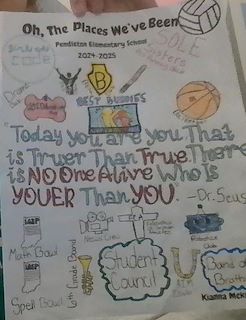 Oh, The Places We've Been
Pendleton Elementary School
2024-2025
SOLE
Sisters
Girls who
code
Drama
Club
B
BEST BUDDIES
"Today you are you That
is Truer Than True. There
is NO One Alive Who Is
YOUER Than YOU."
-Dr. Seus
Math Bowl
News Crew
Robotics
Club
Student
Council
6th Grade Band
Spell Bowl
Band of
Broth
Kianna McK